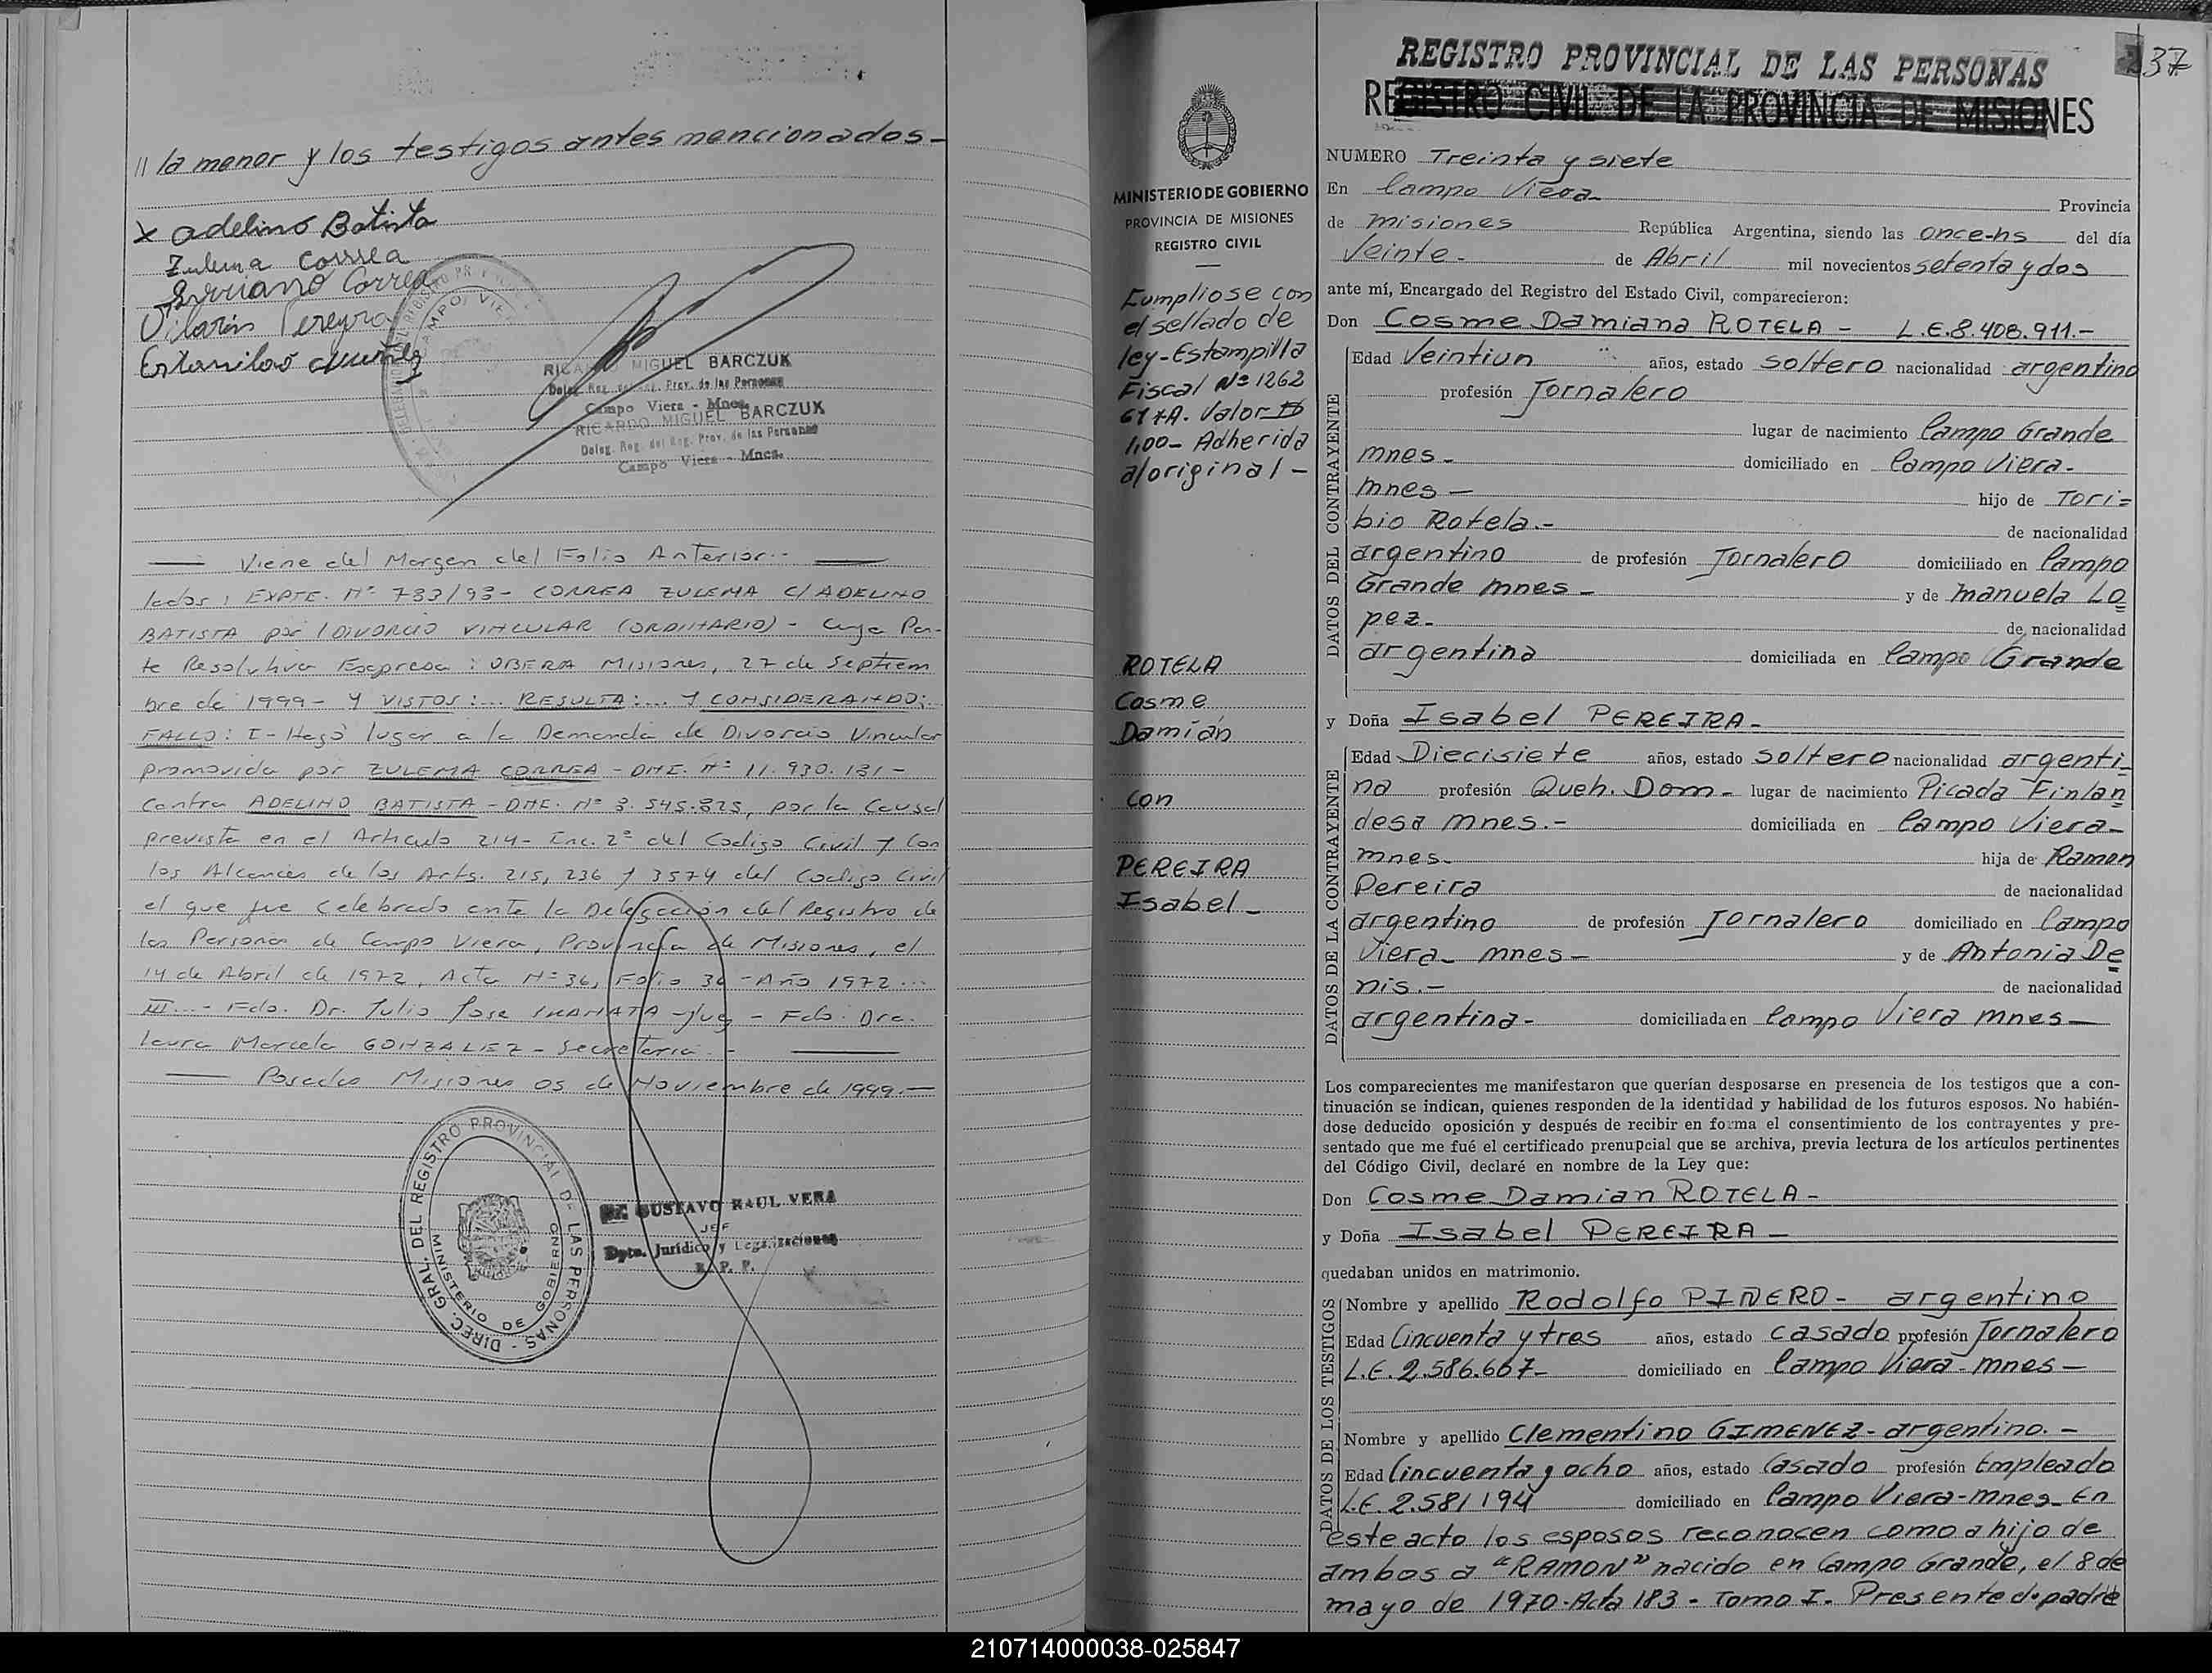 // la menor y los testigos antes mencionados-
x adelino Batista
Zulema Correa
Correa
Pereyra
RICARDO MIGUEL BARCZUK
Deleg. Reg. del Reg. Prov. de las Personas
Campo Viera - Mnes.
RICARDO MIGUEL BARCZUK
Deleg. Reg. del Reg. Prov. de las Personas
Campo Viera - Mnes.
Viene del Margen del Folio Anterior.-
lados: EXPTE. Nº 783/93- CORREA ZULEMA C/ ADELINO
BATISTA por /DIVORCIO VINCULAR (ORDINARIO) - Cuya Par-
te Resolutiva Expresa: OBERA Misiones, 27 de Septiem
bre de 1999- Y VISTOS:... RESULTA:... Y CONSIDERANDO:
FALLO: I- Hago lugar a la Demanda de Divorcio Vincular
promovida por ZULEMA CORREA - DNI. Nº 11.930.131-
contra ADELINO BATISTA - DNI. Nº 8.545.825, por la Causal
prevista en el Artículo 214- Inc. 2º del Codigo Civil y Con
los Alcances de los Arts. 215, 236 y 3574 del Codigo Civil
el que fue Celebrado ante la Delegación del Registro de
las Personas de Campo Viera, Provincia de Misiones, el
14 de Abril de 1972, Acta Nº 36, Folio 36 - Año 1972...
III...- Fdo. Dr. Julio Jose - Juez - Fdo. Dra.
Laura Marcela GONZALEZ - Secretaria.-
Posadas Misiones 05 de Noviembre de 1999.-
DIREC. GRAL. DEL REGISTRO PROVINCIAL DE LAS PERSONAS
MINISTERIO DE GOBIERNO
GUSTAVO RAUL VERA
JEF
Dpto. Jurídico y Legalizaciones
R. P. P.
REGISTRO PROVINCIAL DE LAS PERSONAS
37
REGISTRO CIVIL DE LA PROVINCIA DE MISIONES
MINISTERIO DE GOBIERNO
PROVINCIA DE MISIONES
REGISTRO CIVIL
Cumpliose con
el sellado de
ley-Estampilla
Fiscal Nº 1262
67 *A. Valor $
1,00- Adherida
al original-
ROTELA
Cosme
Damián
con
PEREIRA
Isabel-
NUMERO Treinta y siete
En Campo Viera- Provincia
de misiones República Argentina, siendo las once-hs del día
Veinte- de Abril mil novecientos setenta y dos
ante mí, Encargado del Registro del Estado Civil, comparecieron:
Don Cosme Damiana ROTELA - L.E.8.408.911.-
DATOS DEL CONTRAYENTE
Edad Veintiun años, estado soltero nacionalidad argentino
profesión Jornalero
lugar de nacimiento Campo Grande
mnes- domiciliado en Campo Viera-
mnes- hijo de Tori=
bio Rotela.- de nacionalidad
argentino de profesión Jornalero domiciliado en Campo
Grande mnes- y de manuela Lo=
pez- de nacionalidad
argentina domiciliada en Campo Grande
y Doña Isabel PEREIRA-
DATOS DE LA CONTRAYENTE
Edad Diecisiete años, estado soltero nacionalidad argenti-
na profesión Queh. Dom- lugar de nacimiento Picada Finlan=
desa mnes.- domiciliada en Campo Viera-
mnes- hija de Ramon
Pereira de nacionalidad
argentino de profesión Jornalero domiciliado en Campo
Viera- mnes- y de Antonia De=
nis.- de nacionalidad
argentina- domiciliada en Campo Viera mnes-
Los comparecientes me manifestaron que querían desposarse en presencia de los testigos que a con-
tinuación se indican, quienes responden de la identidad y habilidad de los futuros esposos. No habién-
dose deducido oposición y después de recibir en forma el consentimiento de los contrayentes y pre-
sentado que me fué el certificado prenupcial que se archiva, previa lectura de los artículos pertinentes
del Código Civil, declaré en nombre de la Ley que:
Don Cosme Damian ROTELA-
y Doña Isabel PEREIRA-
quedaban unidos en matrimonio.
DATOS DE LOS TESTIGOS
Nombre y apellido Rodolfo PIÑERO- argentino
Edad Cincuenta y tres años, estado casado profesión Jornalero
L.E.2.586.667- domiciliado en Campo Viera-mnes-
Nombre y apellido Clementino GIMENEZ-argentino.-
Edad Cincuenta y ocho años, estado Casado profesión Empleado
L.E.2.581194 domiciliado en Campo Viera-mnes- En
este acto los esposos reconocen como a hijo de
ambos a "RAMON" nacido en Campo Grande, el 8 de
mayo de 1970-Acta 183- Tomo I- Presente d. padre
210714000038-025847